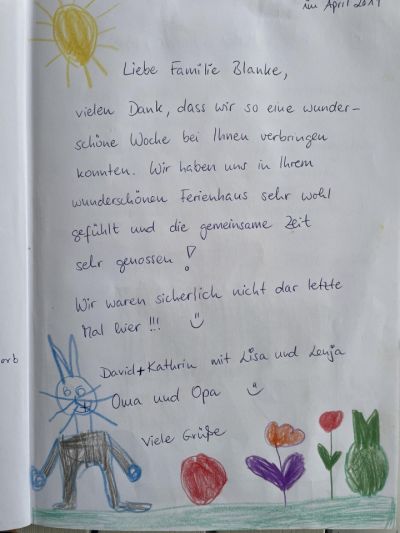 im April 2019
Liebe Familie Blanke,
vielen Dank, dass wir so eine wunder-
schöne Woche bei Ihnen verbringen
konnten. Wir haben uns in Ihrem
wunderschönen Ferienhaus sehr wohl
gefühlt und die gemeinsame Zeit
sehr genossen!
Wir waren sicherlich nicht dar letzte
Mal hier!!!
David + Kathrin mit Lisa und Lenja
Oma und Opa
Viele Grüße
orb